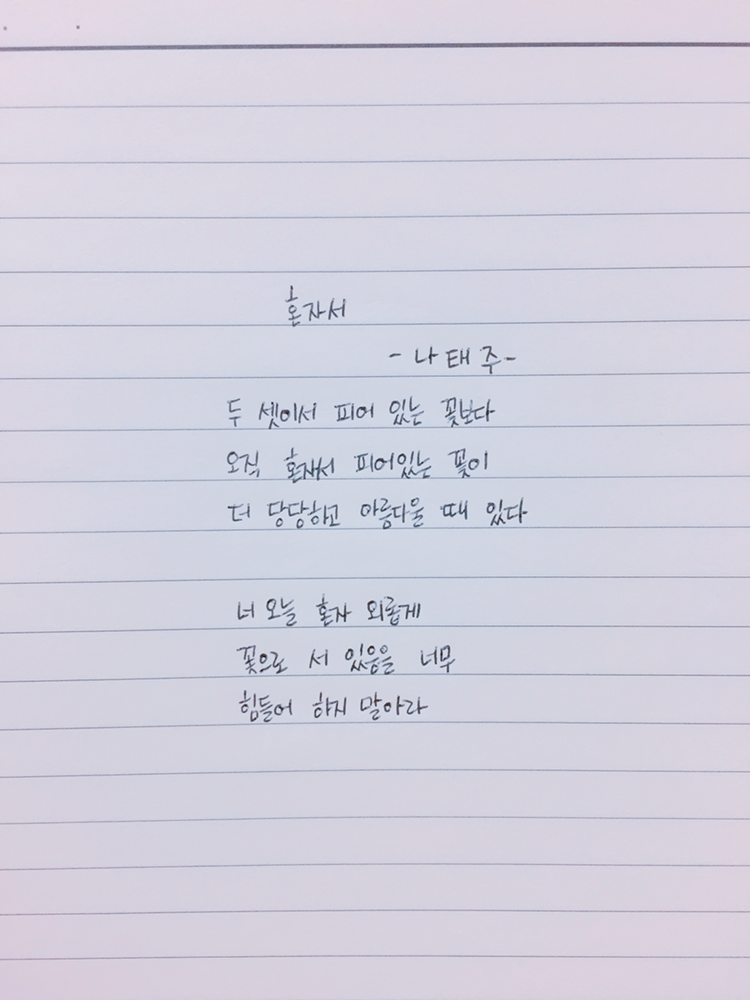 혼자서
- 나 태 주 -
두 셋이서 피어 있는 꽃보다
오직 혼자서 피어있는 꽃이
더 당당하고 아름다울 때 있다
너 오늘 혼자 외롭게
꽃으로 서 있음을 너무
힘들어 하지 말아라